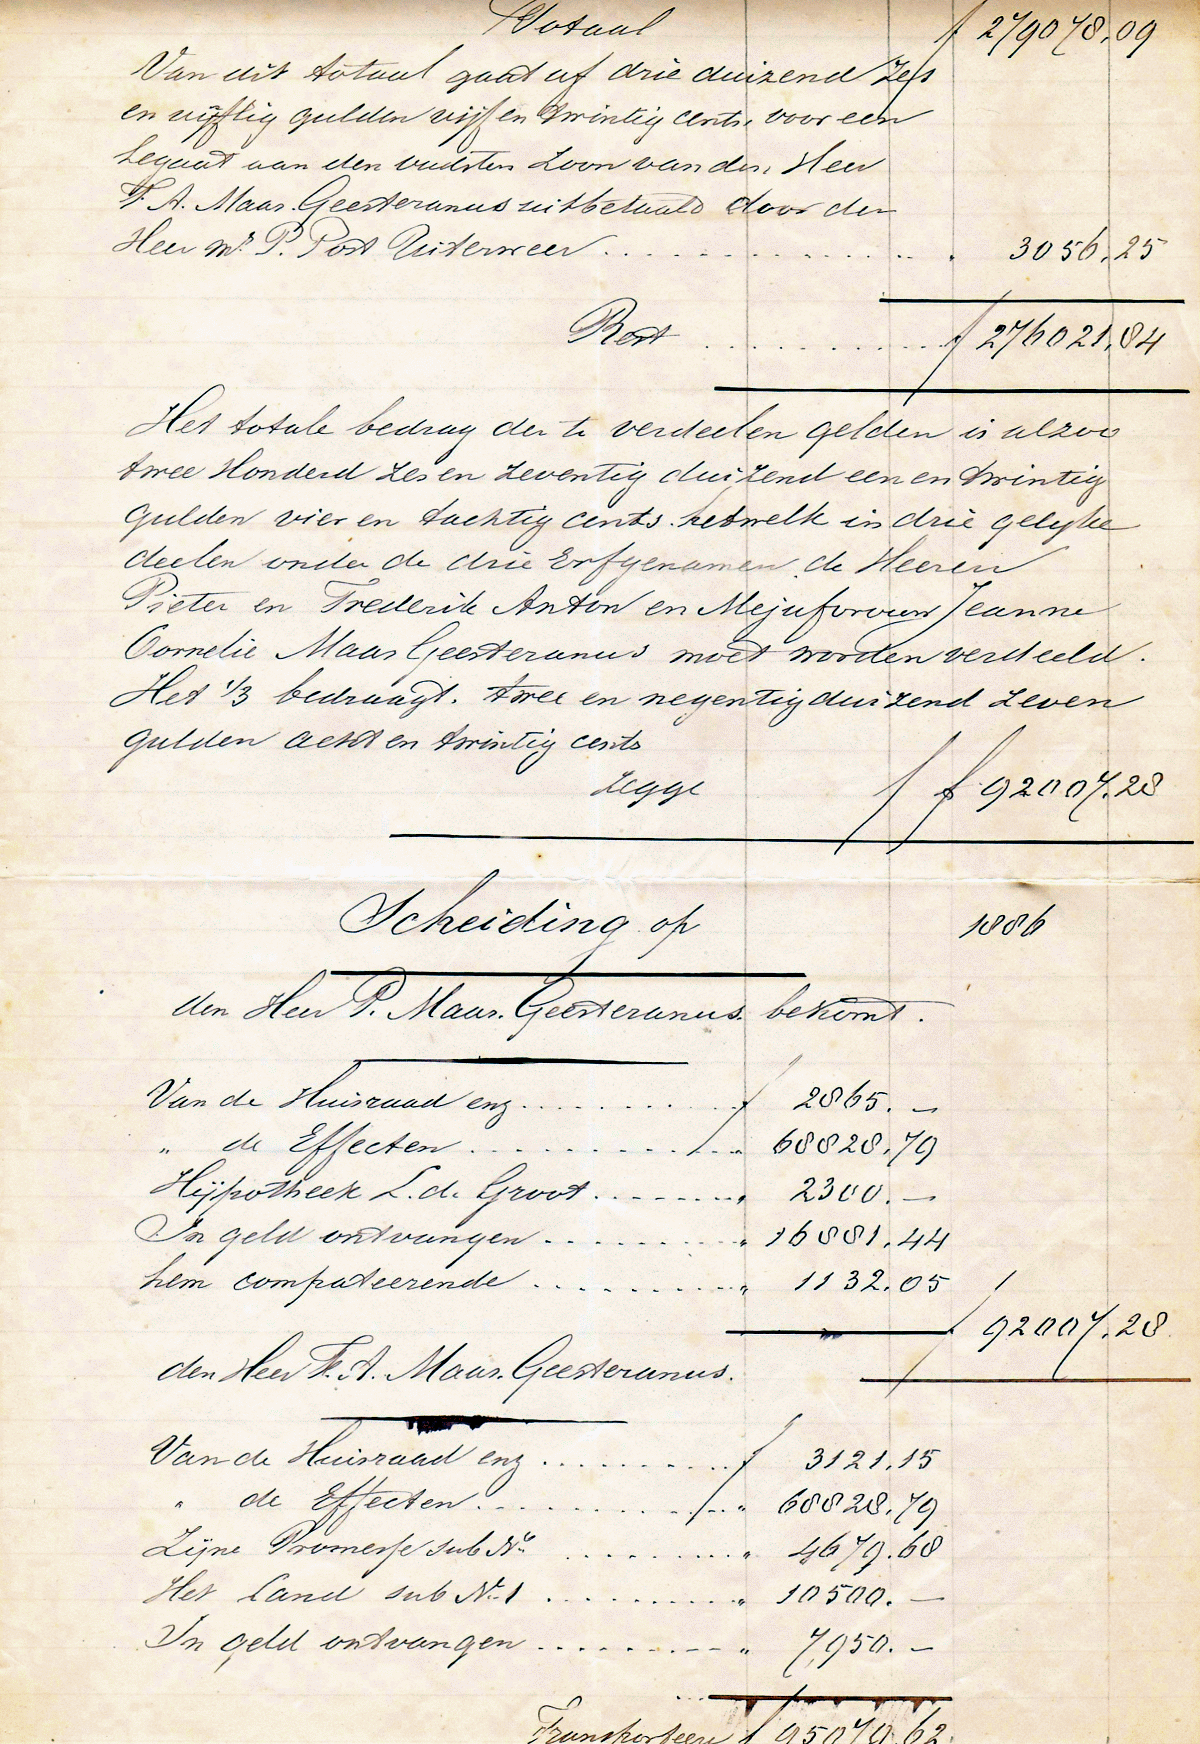 Totaal f 279078.09
Van dit totaal gaat af drie duizend zes
en vijftig gulden vijf en twintig cents, voor een
Legaat aan den oudsten Zoon van den Heer
F. A. Maas Geesteranus uitbetaald door den
Heer Mr. P. Post Uiterweer . . . . . . . . . . . . . 3056.25
Rest . . . . . . . . . . f 276021.84
Het totale bedrag der te verdeelen gelden is alzoo
twee Honderd zes en zeventig duizend een en twintig
Gulden vier en tachtig cents. hetwelk in drie gelijke
deelen onder de drie Erfgenamen de Heeren
Pieter en Frederik Anton en Mejufvrouw Jeanne
Cornelie Maas Geesteranus moet worden verdeeld.
Het 1/3 bedraagt. twee en negentig duizend zeven
gulden acht en twintig cents
zegge f 92007.28
Scheiding op 1886
den Heer P. Maas Geesteranus bekomt.
Van de Huisraad enz . . . . . . . . f 2865. —
" de Effecten . . . . . . . . . . " 68828.79
Hÿpotheek L. de Groot . . . . . . . " 2300. —
In geld ontvangen . . . . . . . . . " 16881.44
hem computeerende . . . . . . . . . " 1132.05
f 92007.28
den Heer F. A. Maas Geesteranus.
Van de Huisraad enz . . . . . . . . . f 3121.15
" de Effecten . . . . . . . . . . " 68828.79
Zijne Promesse sub No . . . . . . . . " 4679.68
Het Land sub No 1 . . . . . . . . . . " 10500. —
In geld ontvangen . . . . . . . . . " 7950. —
Transporteere f 95079.62